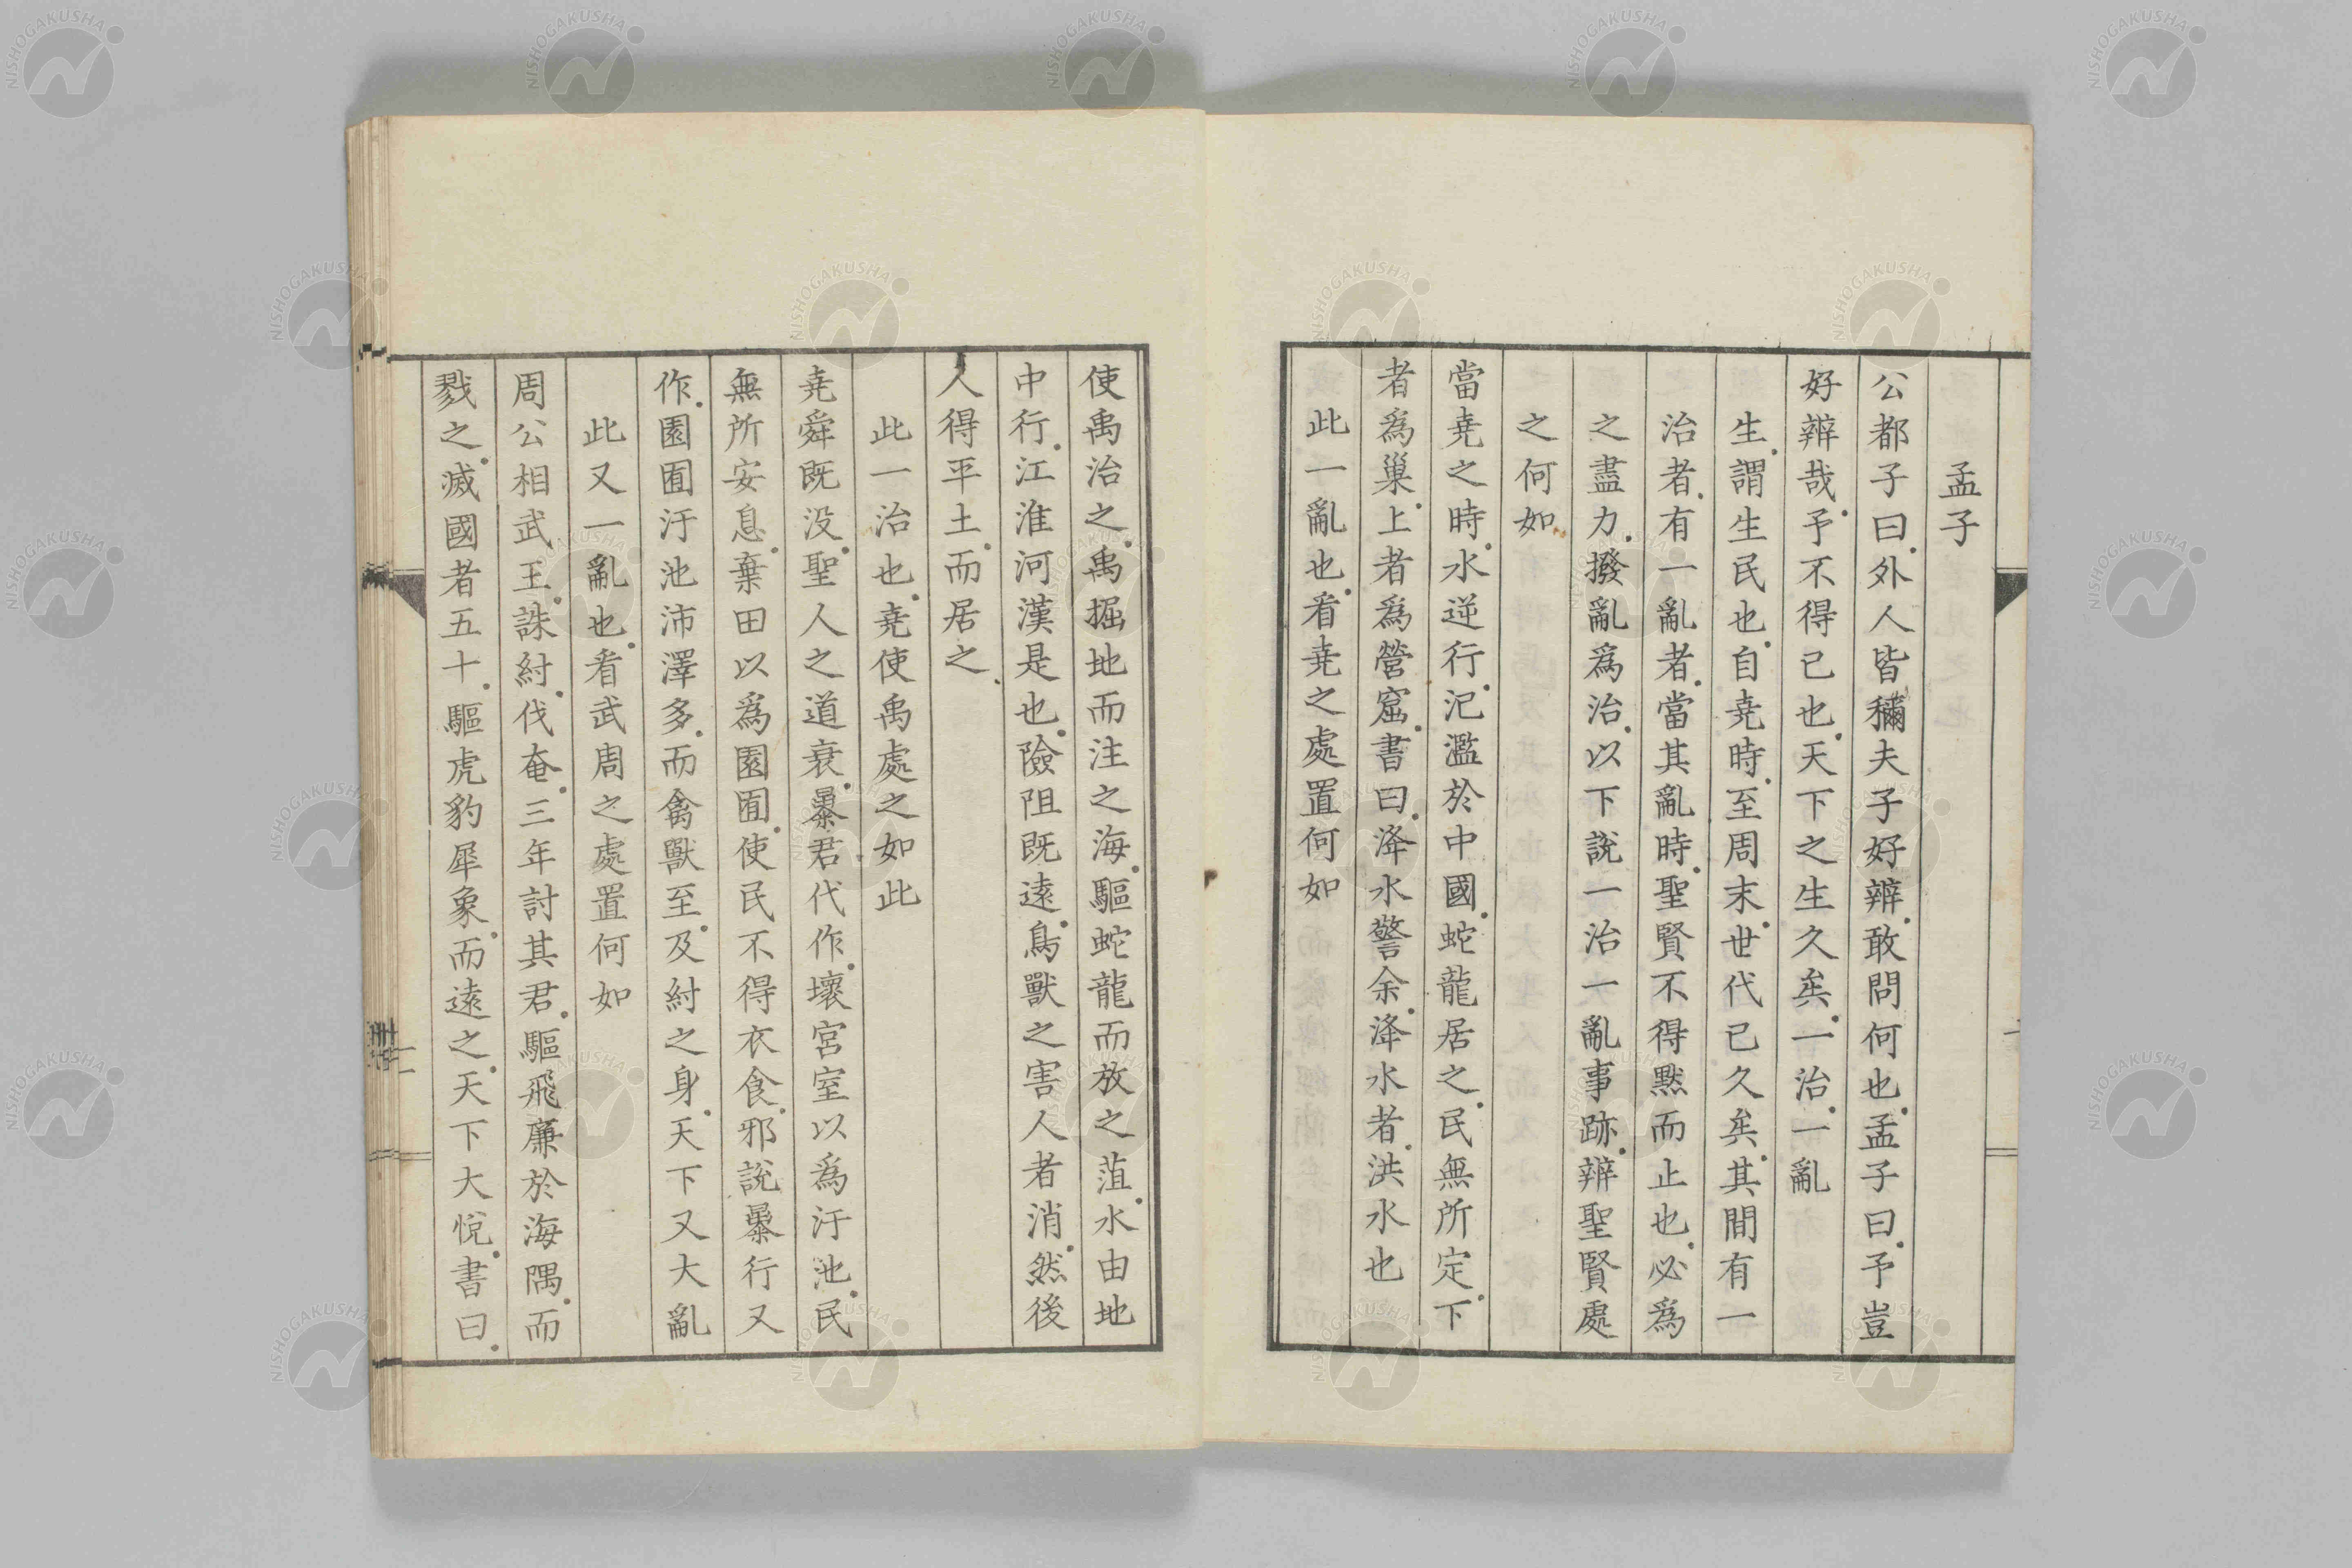 孟子
公都子曰。外人皆穪夫子好辨。敢問何也。孟子曰。予豈
好辨哉。予不得已也。天下之生久矣。一治。一亂
生。謂生民也。自堯時。至周末。世代已久矣。其間有一
治者。有一亂者。當其亂時。聖賢不得默而止也。必爲
之盡力。撥亂爲治。以下說一治一亂事跡。辨聖賢處
之何如
當堯之時。水逆行。氾濫於中國。蛇龍居之。民無所定。下
者爲巢。上者爲營窟。書曰。洚水警余。洚水者。洪水也
此一亂也。看堯之處置何如
使禹治之。禹掘地而注之海。驅蛇龍而放之菹。水由地
中行。江淮河漢是也。險阻既遠。鳥獸之害人者消。然後
人得平土。而居之。
此一治也。堯使禹處之如此
堯舜既沒。聖人之道衰。暴君代作。壞宮室以爲汙池。民
無所安息。棄田以爲園囿。使民不得衣食。邪說暴行又
作。園囿汙池沛澤多。而禽獸至。及紂之身。天下又大亂
此又一亂也。看武周之處置何如
周公相武王。誅紂。伐奄。三年討其君。驅飛廉於海隅。而
戮之。滅國者五十。驅虎豹犀象。而遠之。天下大悅。書曰。
NISHOGAKUSHA